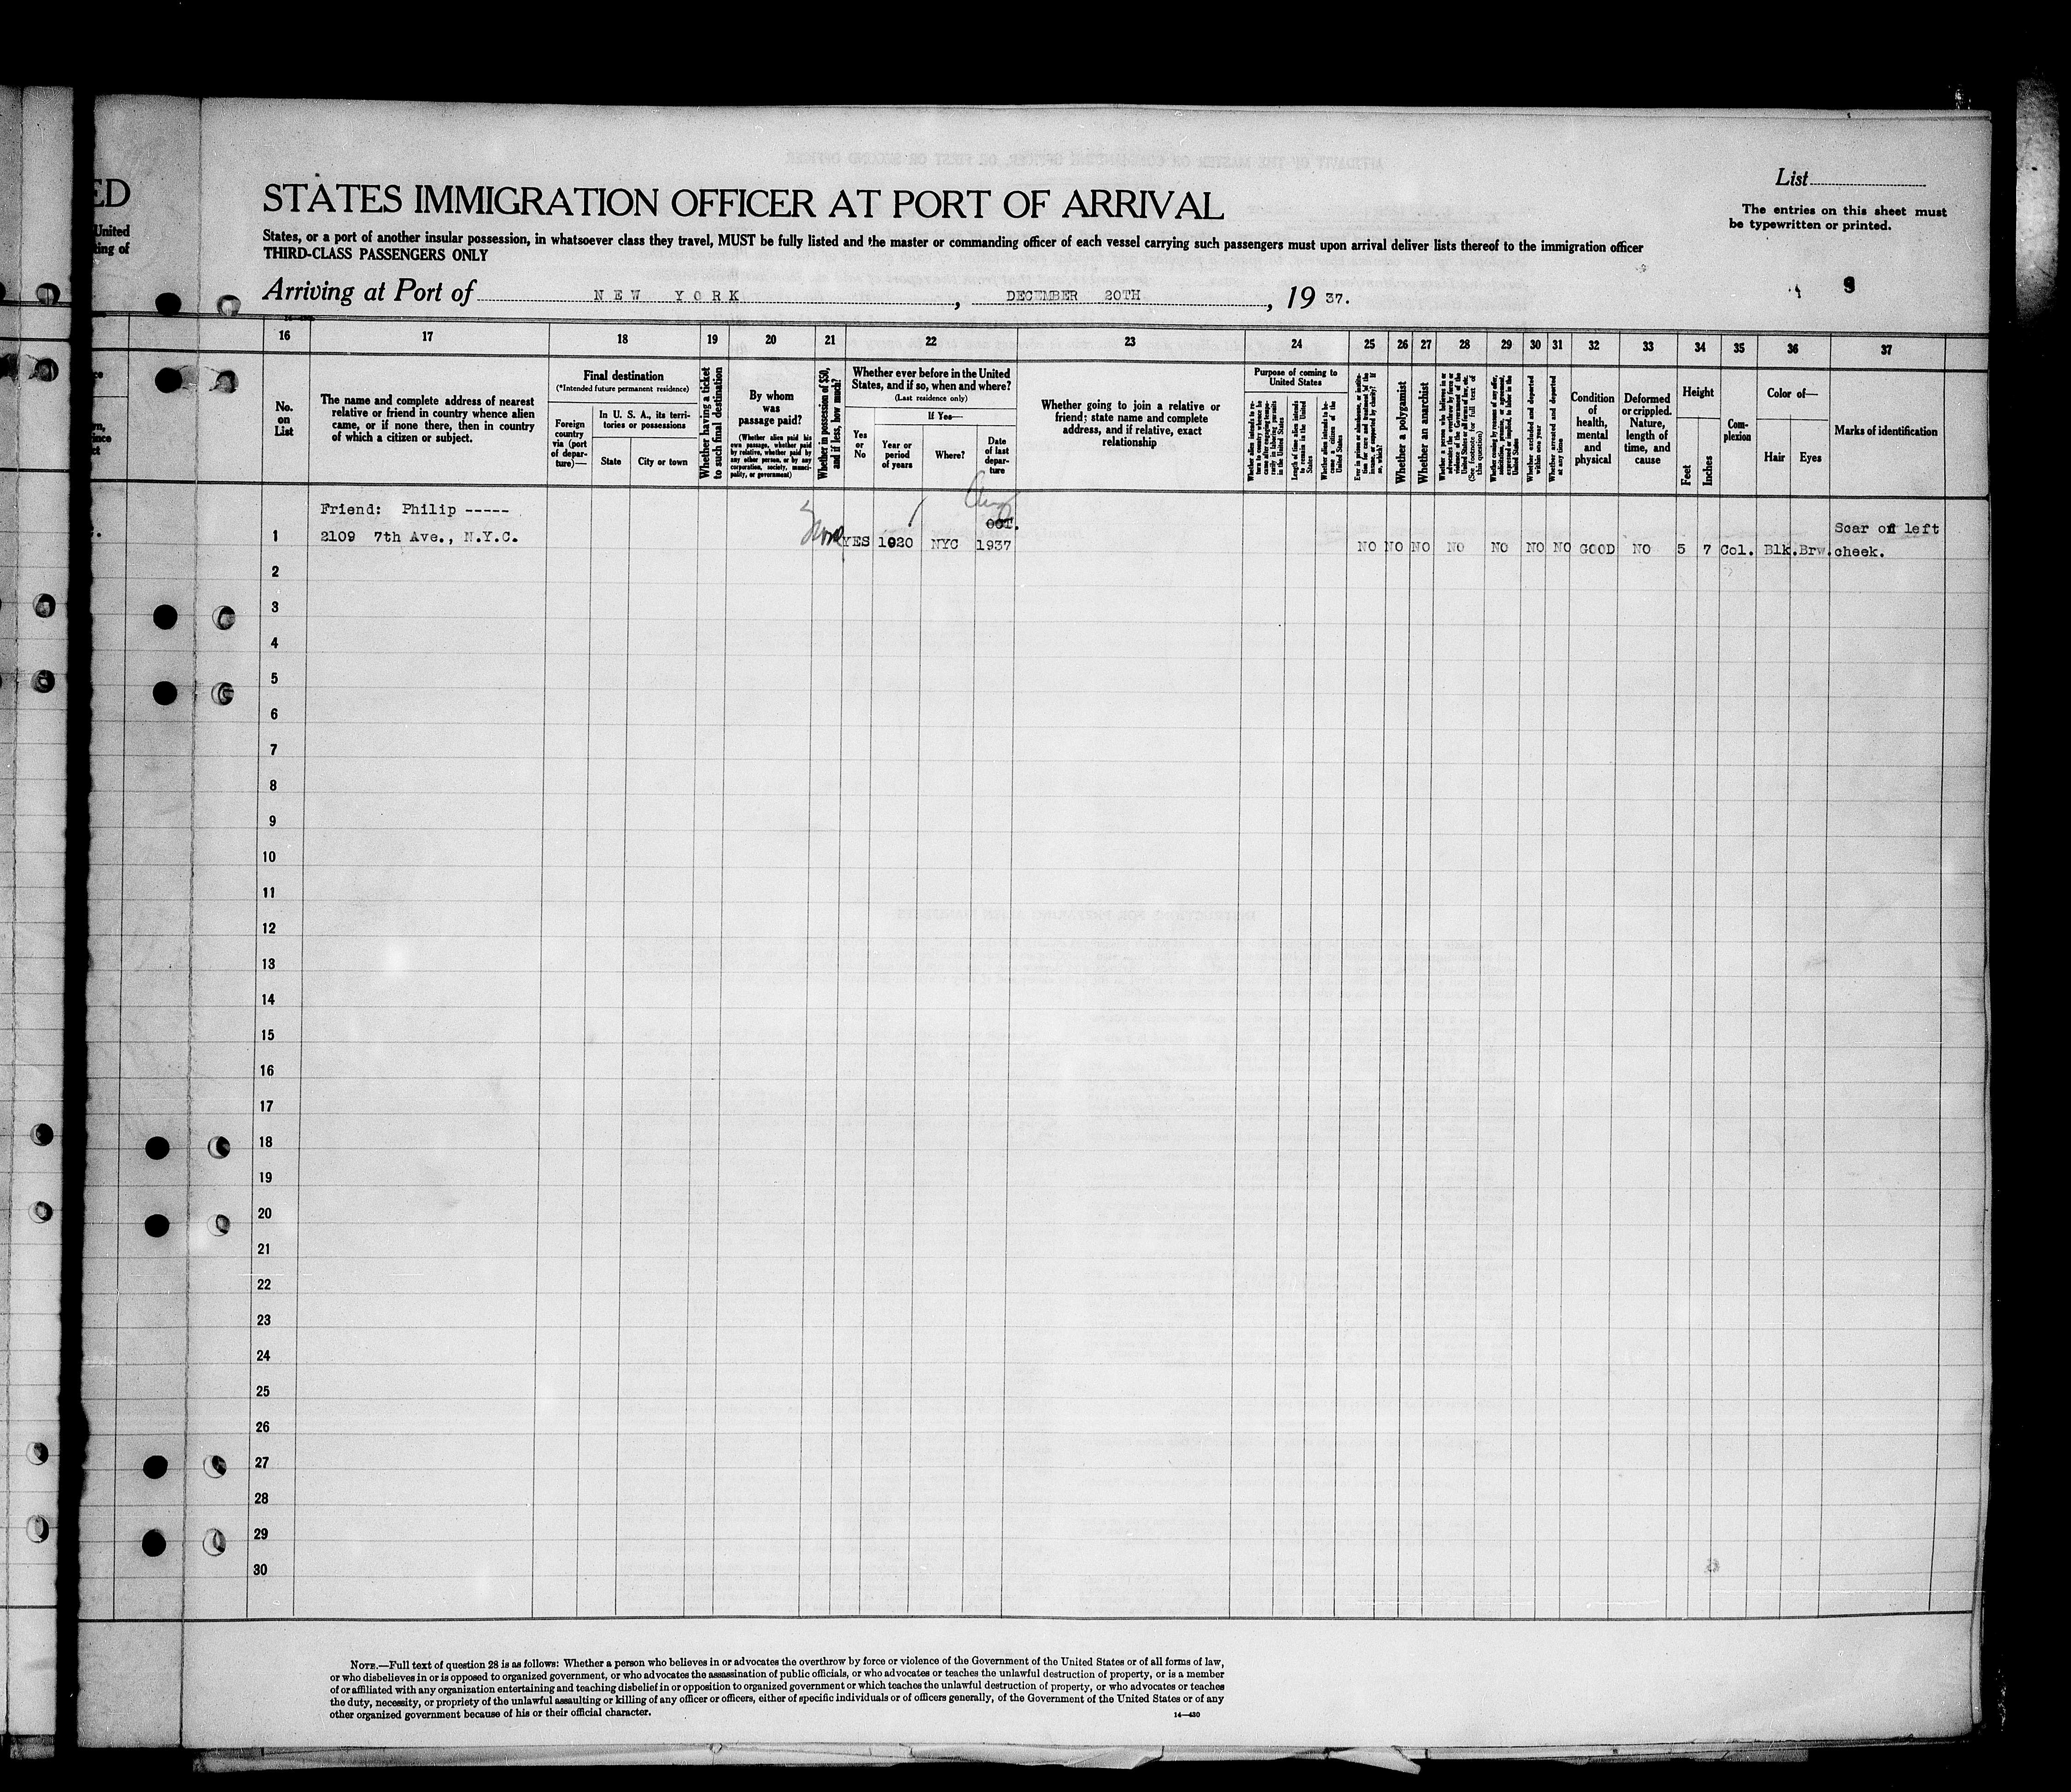 ED
United
ting of
STATES IMMIGRATION OFFICER AT PORT OF ARRIVAL
List
The entries on this sheet must
be typewritten or printed.
States, or a port of another insular possession, in whatsoever class they travel, MUST be fully listed and the master or commanding officer of each vessel carrying such passengers must upon arrival deliver lists thereof to the immigration officer
THIRD-CLASS PASSENGERS ONLY
Arriving at Port of NEW YORK, DECEMBER 20TH, 19 37.
9
16 17 18 19 20 21 22 23 24 25 26 27 28 29 30 31 32 33 34 35 36 37
No.
on
List
The name and complete address of nearest
relative or friend in country whence alien
came, or if none there, then in country
of which a citizen or subject.
Final destination
(*Intended future permanent residence)
Foreign
country
via (port
of depar-
ture)—
In U. S. A., its terri-
tories or possessions
State
City or town
Whether having a ticket
to such final destination
By whom
was
passage paid?
(Whether alien paid his
own passage, whether paid
by relative, whether paid by
any other person, or by any
corporation, society, munici-
pality, or government)
Whether in possession of $50,
and if less, how much?
Whether ever before in the United
States, and if so, when and where?
(Last residence only)
If Yes—
Yes
or
No
Year or
period
of years
Where?
Date
of last
depar-
ture
Whether going to join a relative or
friend; state name and complete
address, and if relative, exact
relationship
Purpose of coming to
United States
Whether alien intends to re-
turn to country whence he
came after engaging tempo-
rarily in laboring pursuits
in the United States
Length of time alien intends
to remain in the United
States
Whether alien intends to be-
come a citizen of the
United States
Ever in prison or almshouse, or institu-
tion for care and treatment of the
insane, or supported by charity? If
so, which?
Whether a polygamist
Whether an anarchist
Whether a person who believes in or
advocates the overthrow by force or
violence of the Government of the
United States or all forms of law, etc.
(See footnote for full text of
this question)
Whether coming by reasons of any offer,
solicitation, promise, or agreement,
expressed or implied, to labor in the
United States
Whether excluded and deported
within one year
Whether arrested and deported
at any time
Condition
of
health,
mental
and
physical
Deformed
or crippled.
Nature,
length of
time, and
cause
Height
Feet
Inches
Com-
plexion
Color of—
Hair
Eyes
Marks of identification
Friend: Philip -----
Aug
OCT.
Scar on left
1 2109 7th Ave., N.Y.C. YES 1920 NYC 1937 NO NO NO NO NO NO NO GOOD NO 5 7 Col. Blk. Brw. cheek.
2
3
4
5
6
7
8
9
10
11
12
13
14
15
16
17
18
19
20
21
22
23
24
25
26
27
28
29
30
NOTE.—Full text of question 28 is as follows: Whether a person who believes in or advocates the overthrow by force or violence of the Government of the United States or of all forms of law,
or who disbelieves in or is opposed to organized government, or who advocates the assassination of public officials, or who advocates or teaches the unlawful destruction of property, or is a member
of or affiliated with any organization entertaining and teaching disbelief in or opposition to organized government or which teaches the unlawful destruction of property, or who advocates or teaches
the duty, necessity, or propriety of the unlawful assaulting or killing of any officer or officers, either of specific individuals or of officers generally, of the Government of the United States or of any
other organized government because of his or their official character.
14—430